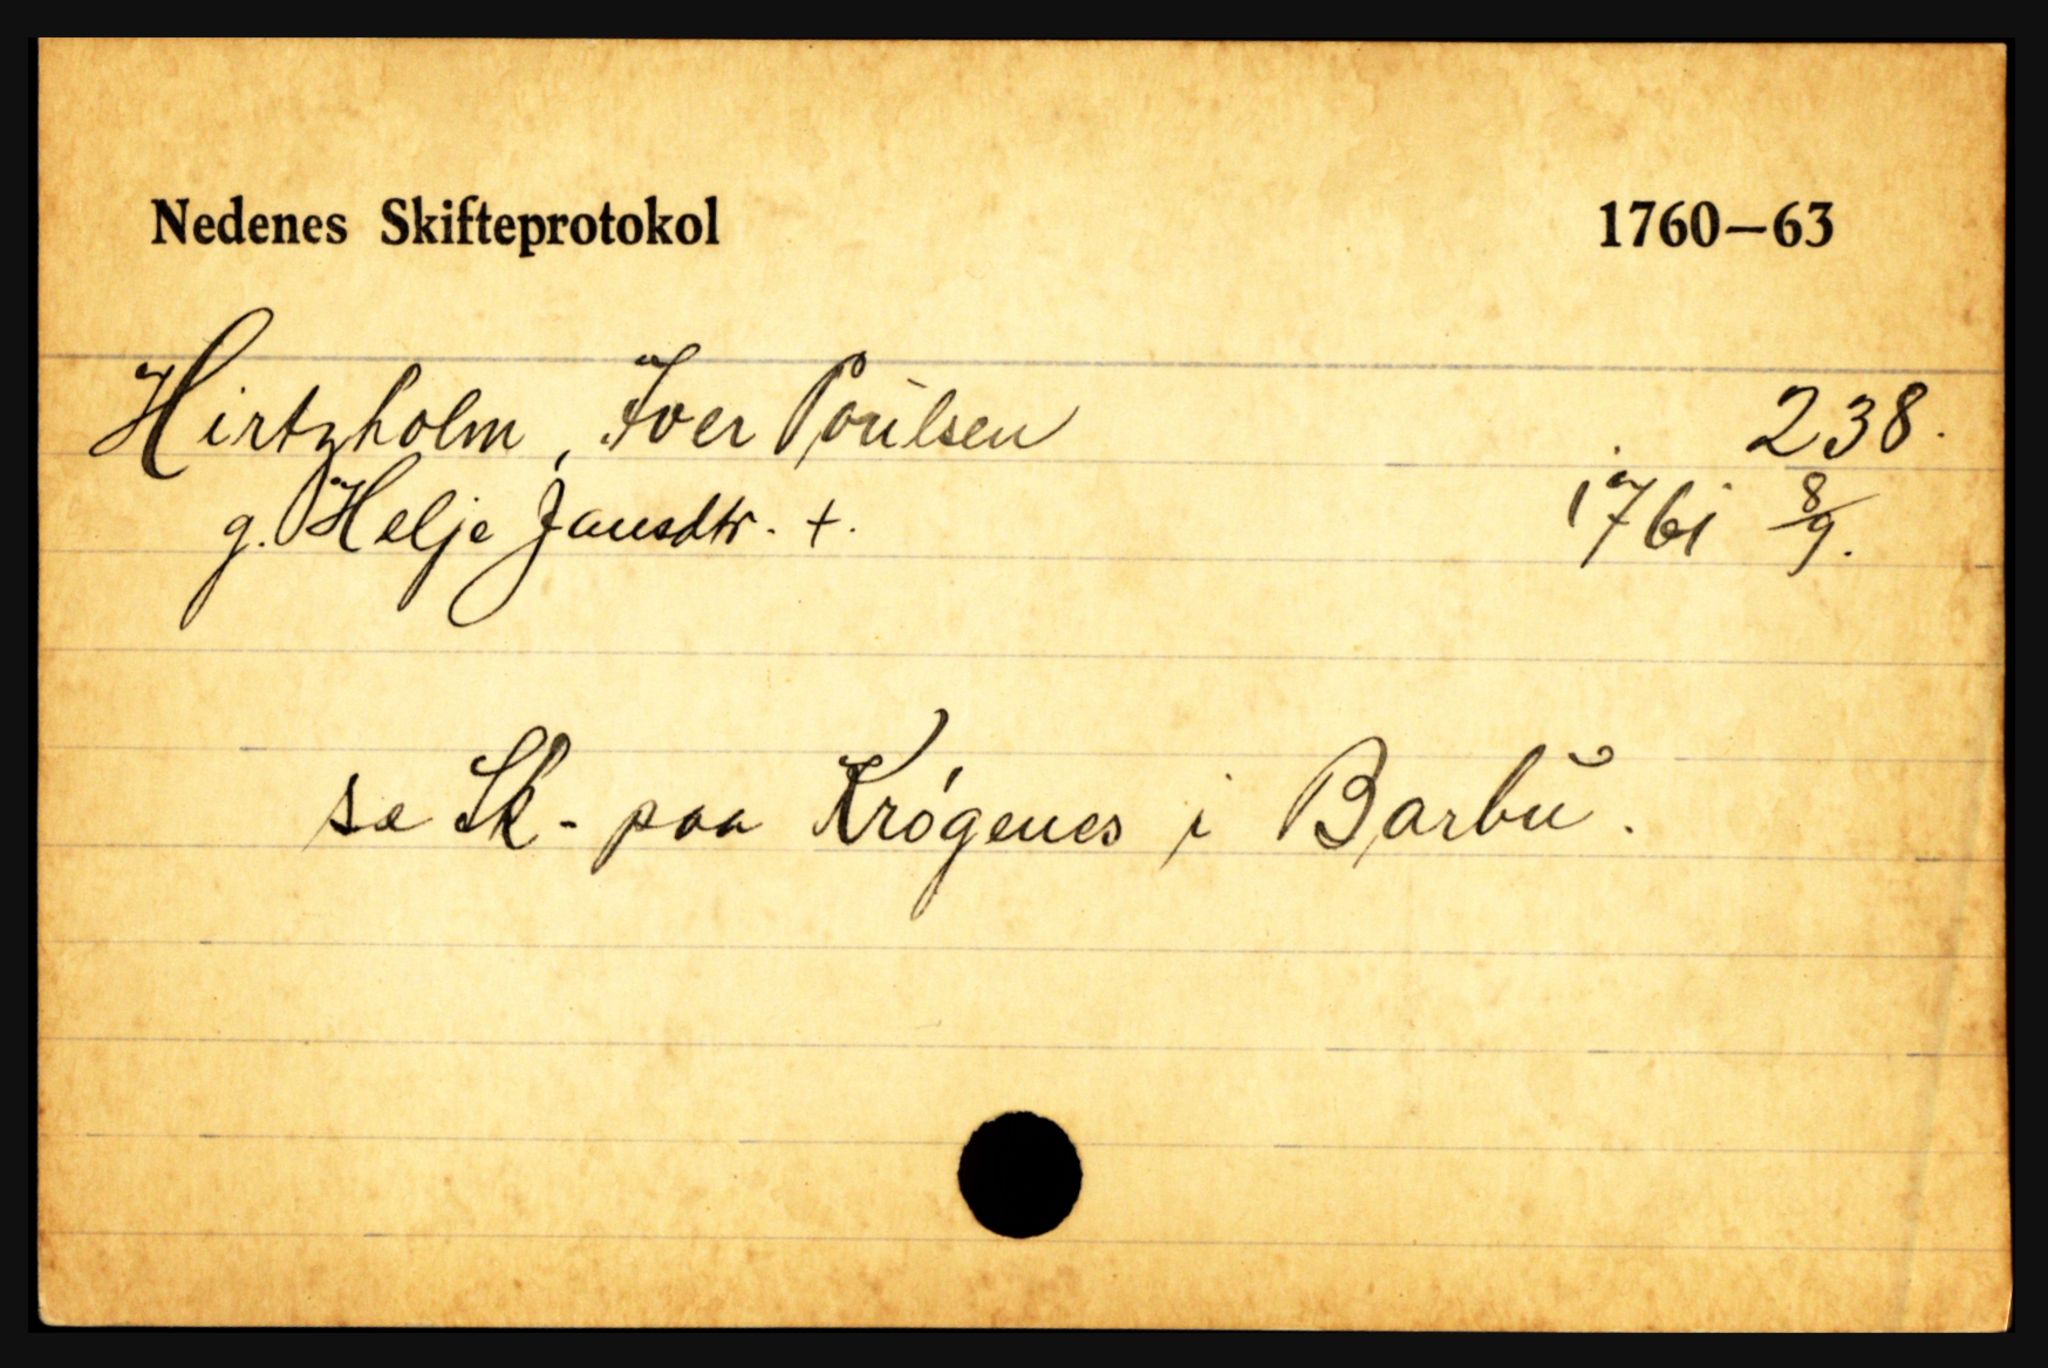 Nedenes Skifteprotokol 1760—63
Hirtzholm, Iver Poulsen 238.
g. Helje Jansdtr. +. 1761 8/9.
se Sk- paa Krógenes i Barbu.